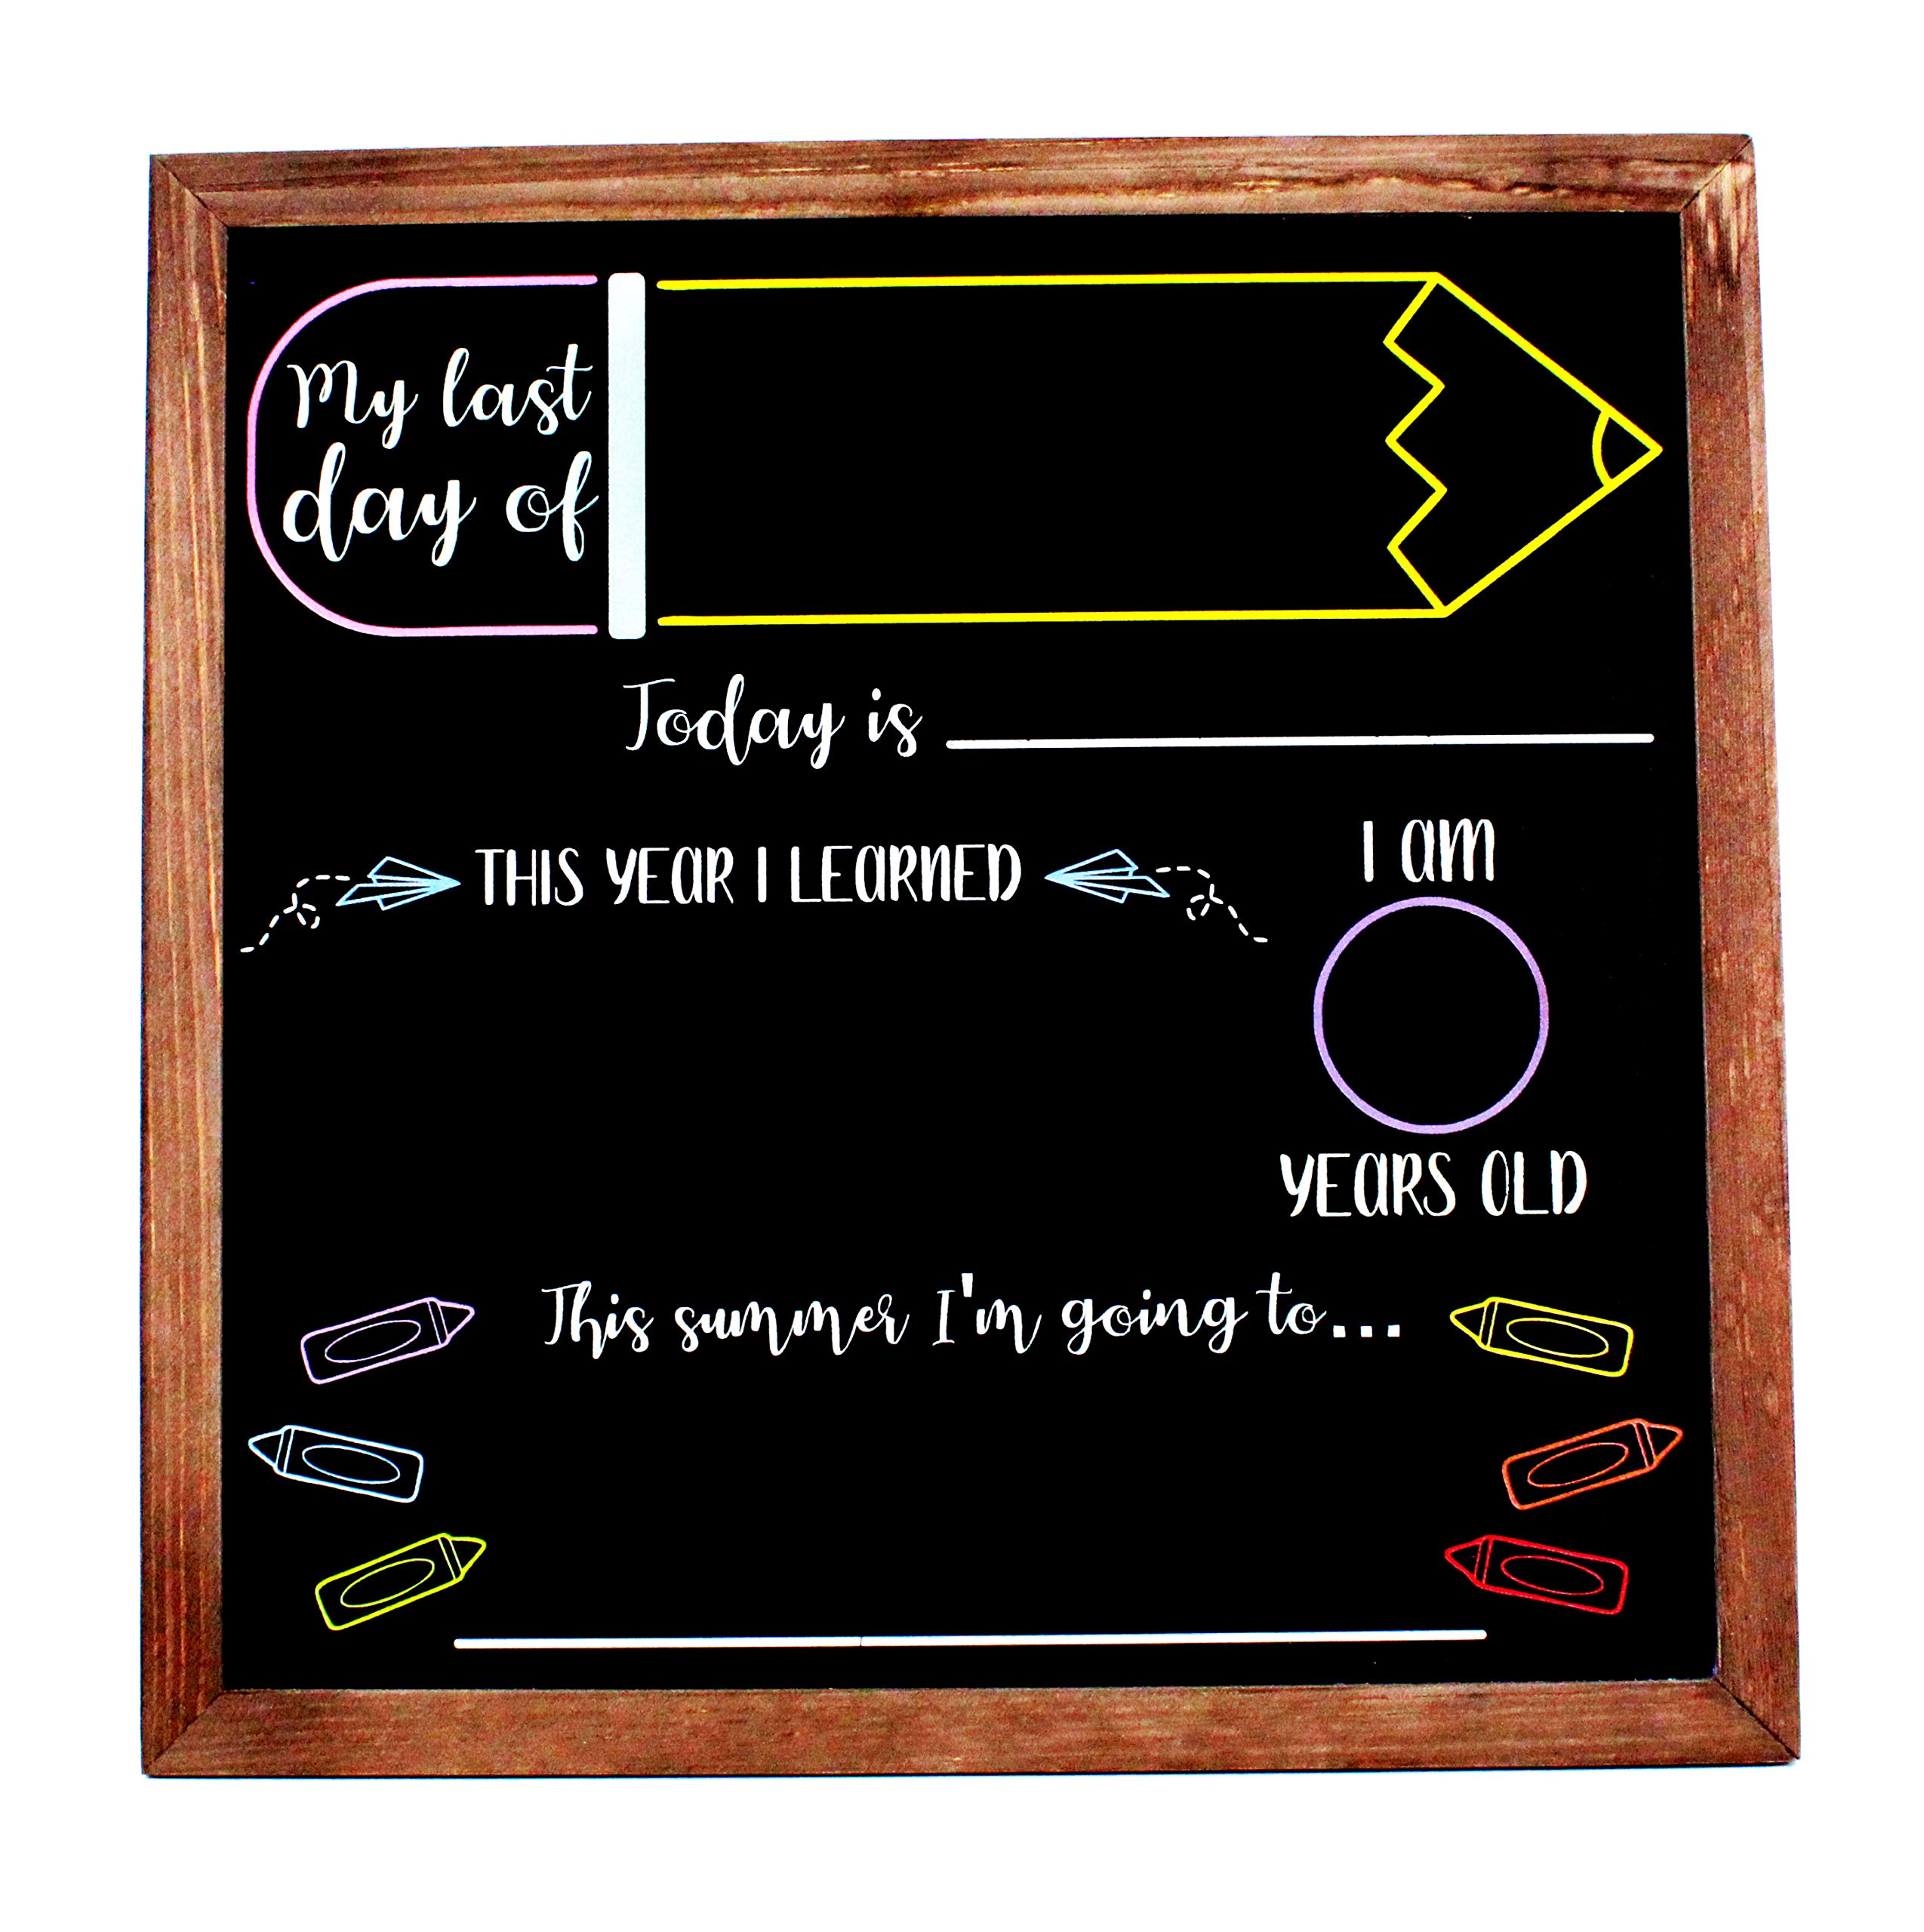 My last
day of
Today is
THIS YEAR I LEARNED
I AM
YEARS OLD
This summer I'm going to...